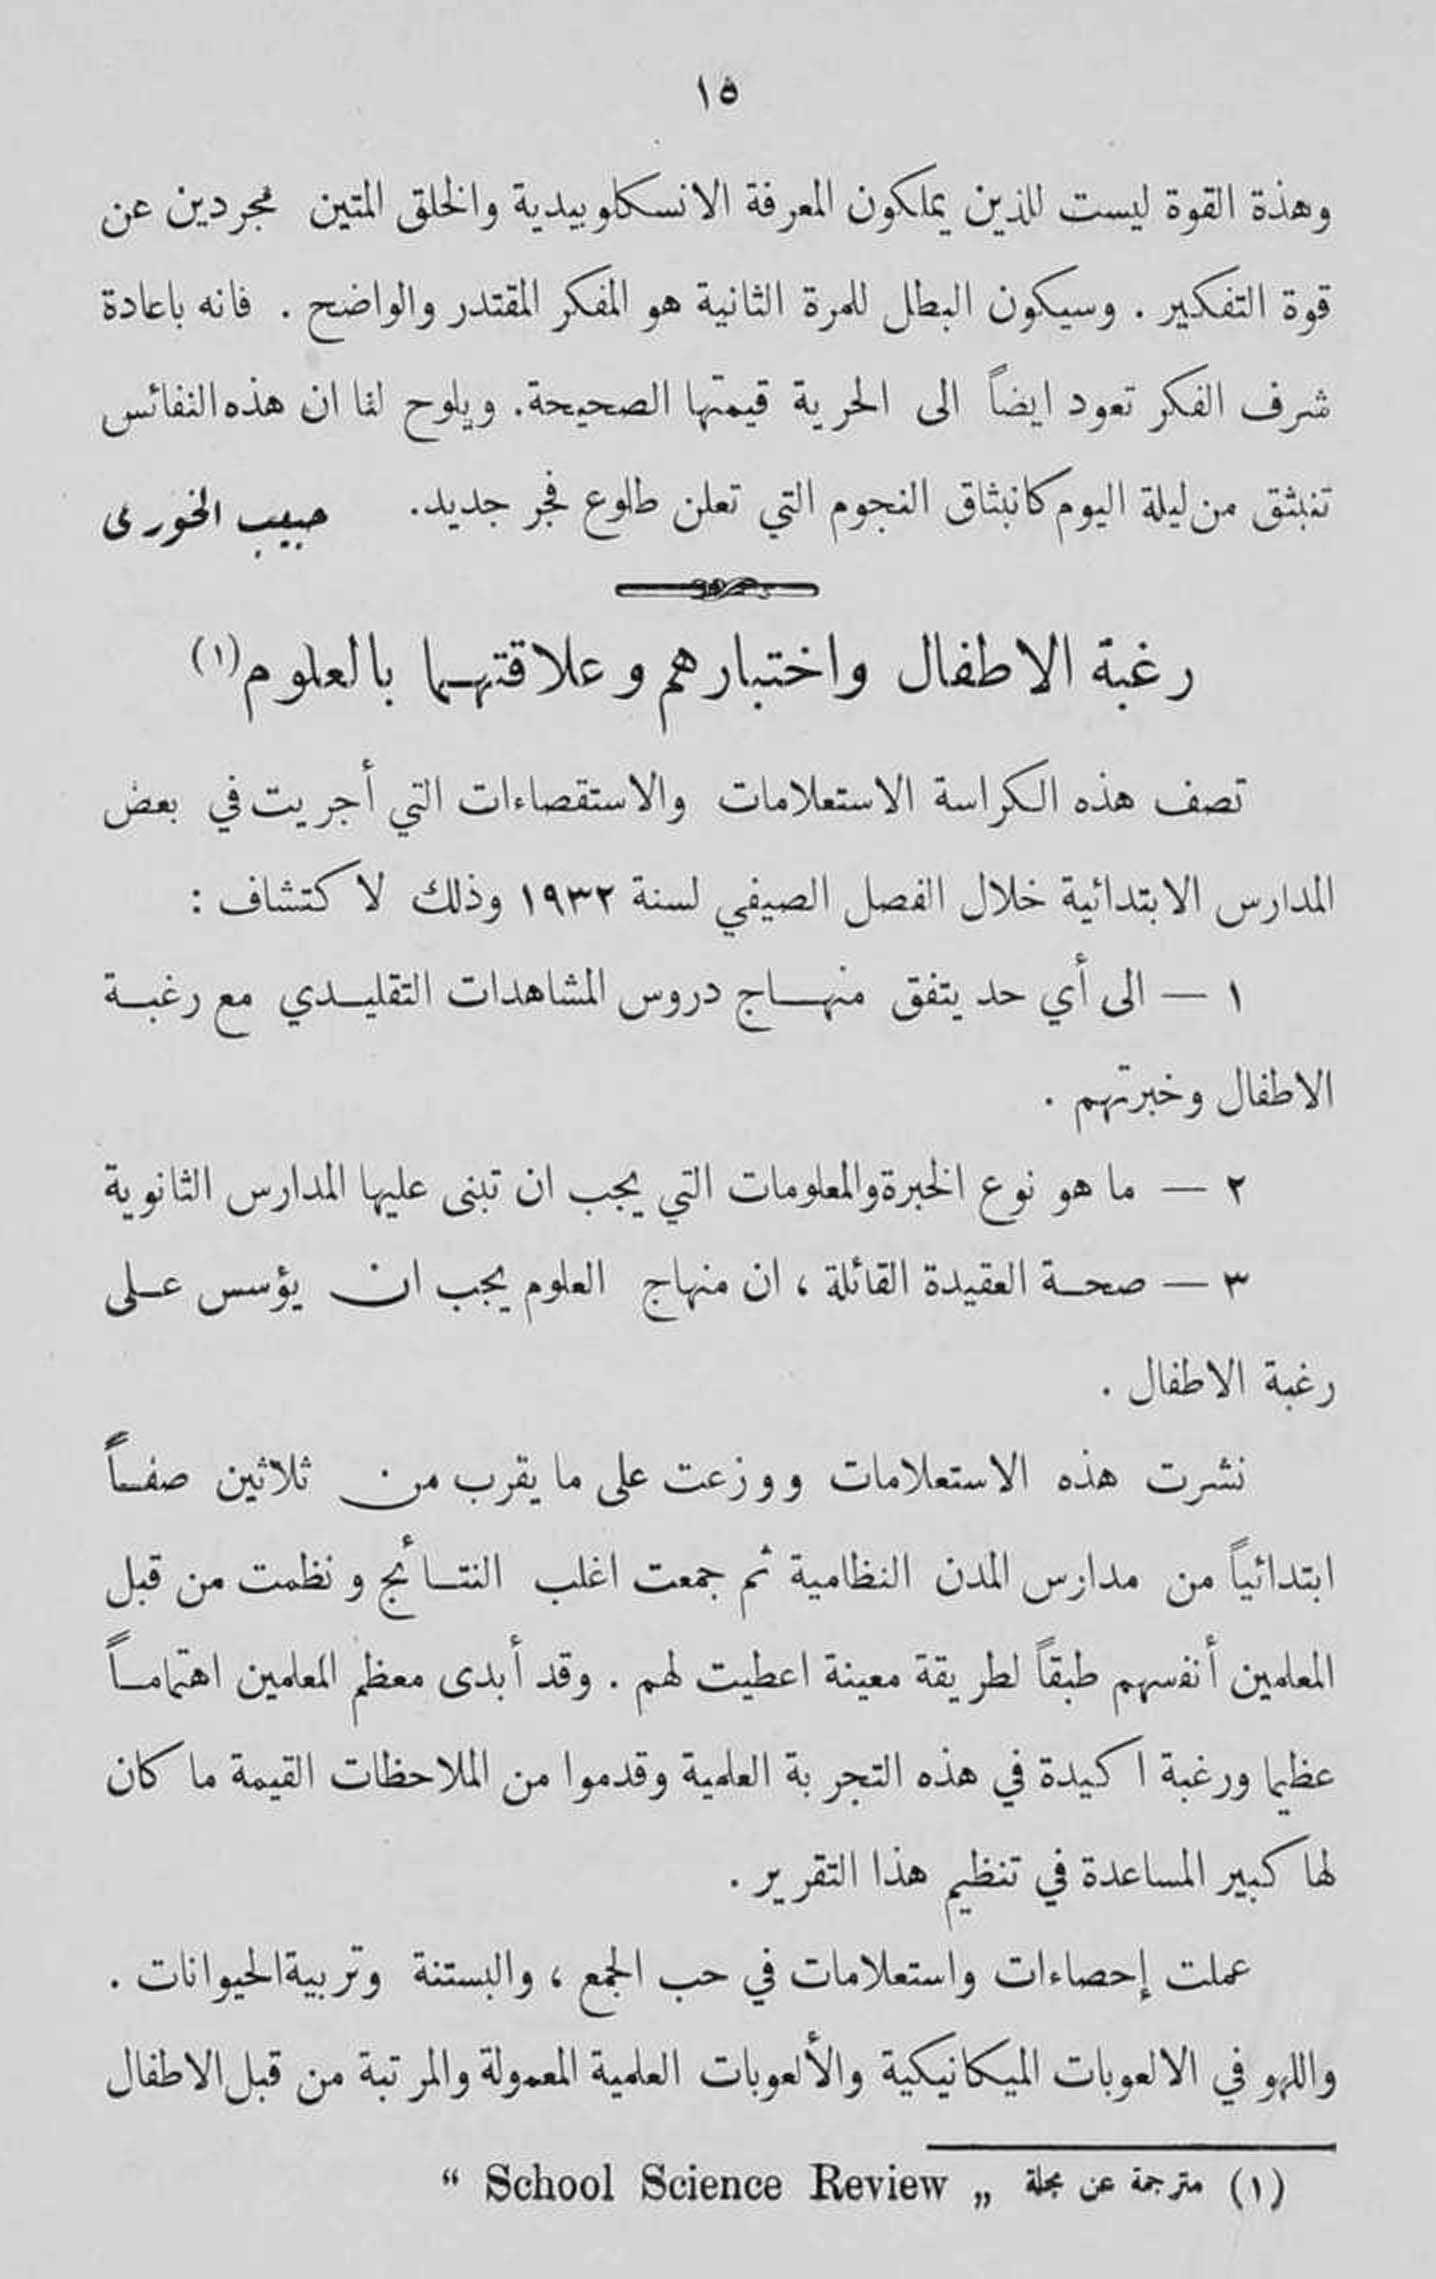 ١٥
وهذة القوة ليست للذين يملكون المعرفة الانسكلوبيدية والخلق المتين مجردين عن
قوة التفكير . وسيكون البطل للمرة الثانية هو المفكر المقتدر والواضح . فانه باعادة
شرف الفكر تعود ايضاً الى الحرية قيمتها الصحيحة. ويلوح لنا ان هذه النفائس
تنبثق من ليلة اليوم كانبثاق النجوم التي تعلن طلوع فجر جديد. حبيب الخوري
رغبة الاطفال واختبارهم وعلاقتهما بالعلوم (١)
تصف هذه الكراسة الاستعلامات والاستقصاءات التي أجريت في بعض
المدارس الابتدائية خلال الفصل الصيفي لسنة ١٩٣٢ وذلك لاكتشاف :
١ — الى أي حد يتفق منهاج دروس المشاهدات التقليدي مع رغبة
الاطفال وخبرتهم .
٢ — ما هو نوع الخبرة والمعلومات التي يجب ان تبنى عليها المدارس الثانوية
٣ — صحة العقيدة القائلة ، ان منهاج العلوم يجب ان يؤسس على
رغبة الاطفال .
نشرت هذه الاستعلامات ووزعت على ما يقرب من ثلاثين صفاً
ابتدائياً من مدارس المدن النظامية ثم جمعت اغلب النتائج ونظمت من قبل
المعلمين أنفسهم طبقاً لطريقة معينة اعطيت لهم . وقد أبدى معظم المعلمين اهتماماً
عظيما ورغبة اكيدة في هذه التجربة العلمية وقدموا من الملاحظات القيمة ما كان
لها كبير المساعدة في تنظيم هذا التقرير .
عملت إحصاءات واستعلامات في حب الجمع ، والبستنة وتربية الحيوانات .
واللهو في الالعوبات الميكانيكية والألعوبات العلمية المعمولة والمرتبة من قبل الاطفال
(١) مترجمة عن مجلة „ School Science Review “